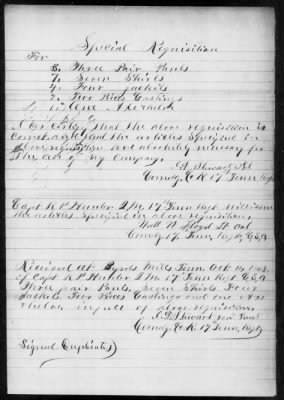 Special Requisition
For
3. Three Pair Pants
7. Seven Shirts
4. Four Jackets
2. Two Pices Castings
1. One
I certify that the above requisition is
correct and that the articles specified in
above requisition are absolutely necessary for
the use of my Company
Stewart
Comdg Co K 17 Tenn Regt
Capt R P Hunter A.Q.M. 17 Tenn Regt will issue
the articles specified in above requisition
Watt W Floyd Lt Col
Comdg 17 Tenn Regt C.S.A
Received at Byrds Mills Tenn Oct
of Capt R P Hunter A.Q.M. 17 Tenn Regt C.S.A
Three pair Pants, Seven Shirts Four
Jackets Two Pices Castings and one
in full of above requisition
Stewart
Comdg Co K 17 Tenn Regt
Signed Duplicates